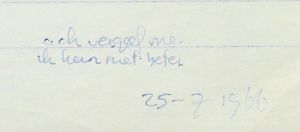 ach vergeef me
ik kan niet beter
25-7-1966